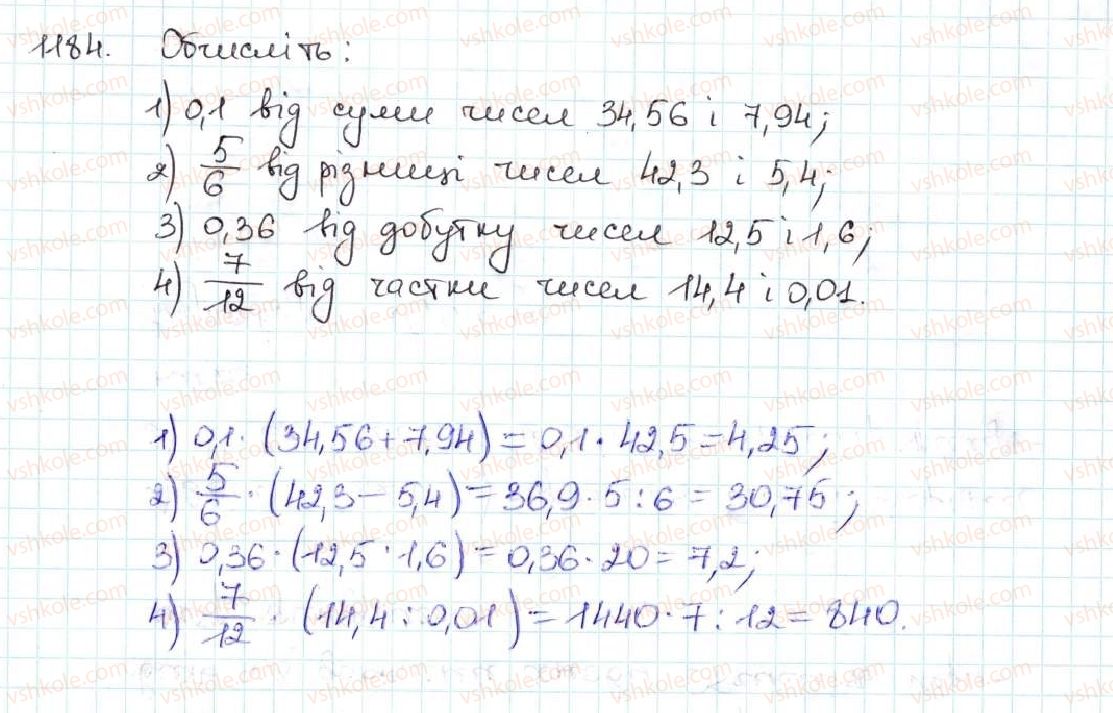 1184. Обчисліть:
1) 0,1 від суми чисел 34,56 і 7,94;
2) 5/6 від різниці чисел 42,3 і 5,4;
3) 0,36 від добутку чисел 12,5 і 1,6;
4) 7/12 від частки чисел 14,4 і 0,01.
1) 0,1 · (34,56 + 7,94) = 0,1 · 42,5 = 4,25;
2) 5/6 · (42,3 - 5,4) = 36,9 · 5 : 6 = 30,75;
3) 0,36 · (12,5 · 1,6) = 0,36 · 20 = 7,2;
4) 7/12 · (14,4 : 0,01) = 1440 · 7 : 12 = 840.
vshkole.com